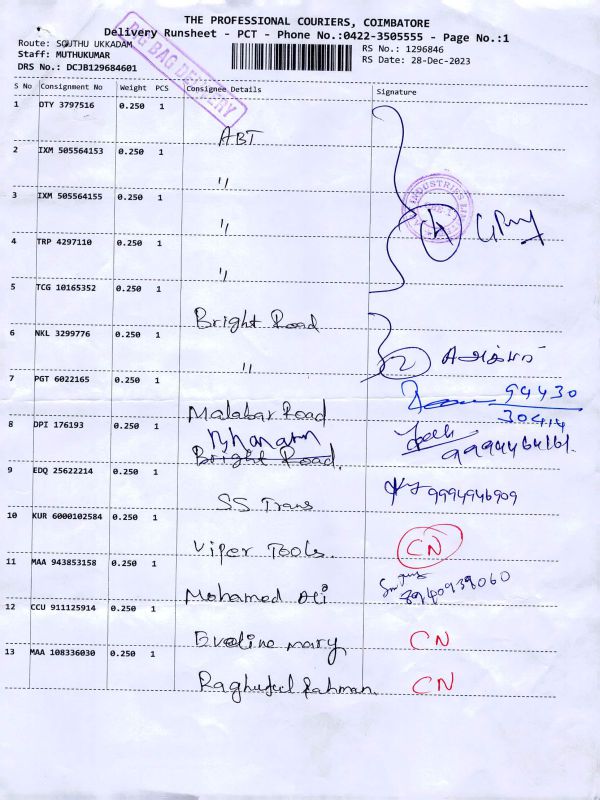 THE PROFESSIONAL COURIERS, COIMBATORE
Delivery Runsheet - PCT - Phone No.:0422-3505555 - Page No.:1
Route: SOUTHU UKKADAM
Staff: MUTHUKUMAR
DRS No.: DCJB129684601
RS No.: 1296846
RS Date: 28-Dec-2023
BAG DELIVERY
S No Consignment No Weight PCS Consignee Details Signature
1 DTY 3797516 0.250 1
ABT
2 IXM 505564153 0.250 1
"
INDUSTRIES
3 IXM 505564155 0.250 1
"
4
4 TRP 4297110 0.250 1
"
5 TCG 10165352 0.250 1
Bright Road
6 NKL 3299776 0.250 1
"
2
7 PGT 6022165 0.250 1
94430
30414
Malabar Road
8 DPI 176193 0.250 1
Bright Road.
9 EDQ 25622214 0.250 1
9994946909
SS Trans
10 KUR 6000102584 0.250 1
Viper Tools.
CN
11 MAA 943853158 0.250 1
8940939060
Mohamed Ali
12 CCU 911125914 0.250 1
Eveline mary
CN
13 MAA 108336030 0.250 1
Raghuful Rahman.
CN